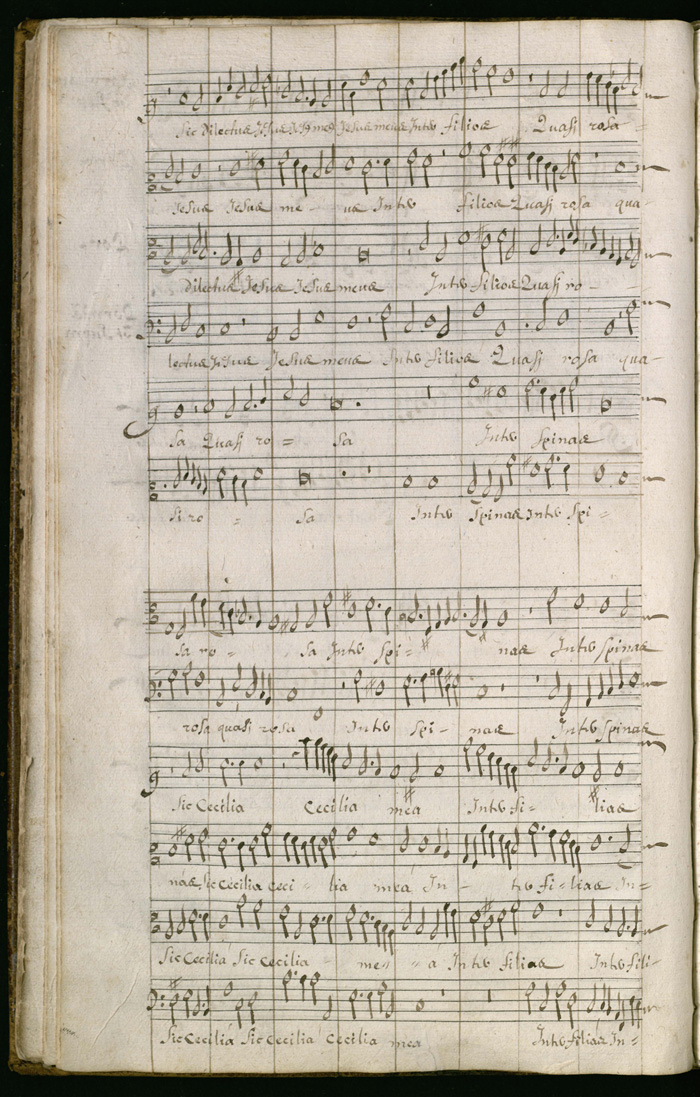 Sic Dilectus Jesus Jesus meus Jesus meus Inter filios Quasi rosa
Jesus Jesus me - us Inter filios Quasi rosa qua-
Dilectus Jesus Jesus meus Inter filios Quasi ro -
lectus Jesus Jesus meus Inter filios Quasi rosa qua-
Sa Quasi ro = Sa Inter Spinas
Si ro - Sa Inter Spinas Inter Spi -
sa ro - Sa Inter Spi = nas Inter spinas
rosa quasi rosa Inter Spi - nas Inter Spinas
Sic Cecilia Cecilia mea Inter fi = lias
nas Sic Cecilia Ceci - lia mea In - ter fi - lias In =
Sic Cecilia Sic Cecilia - me - - a Inter filias Inter fili -
Sic Cecilia Sic Cecilia Cecilia mea Inter filias In =